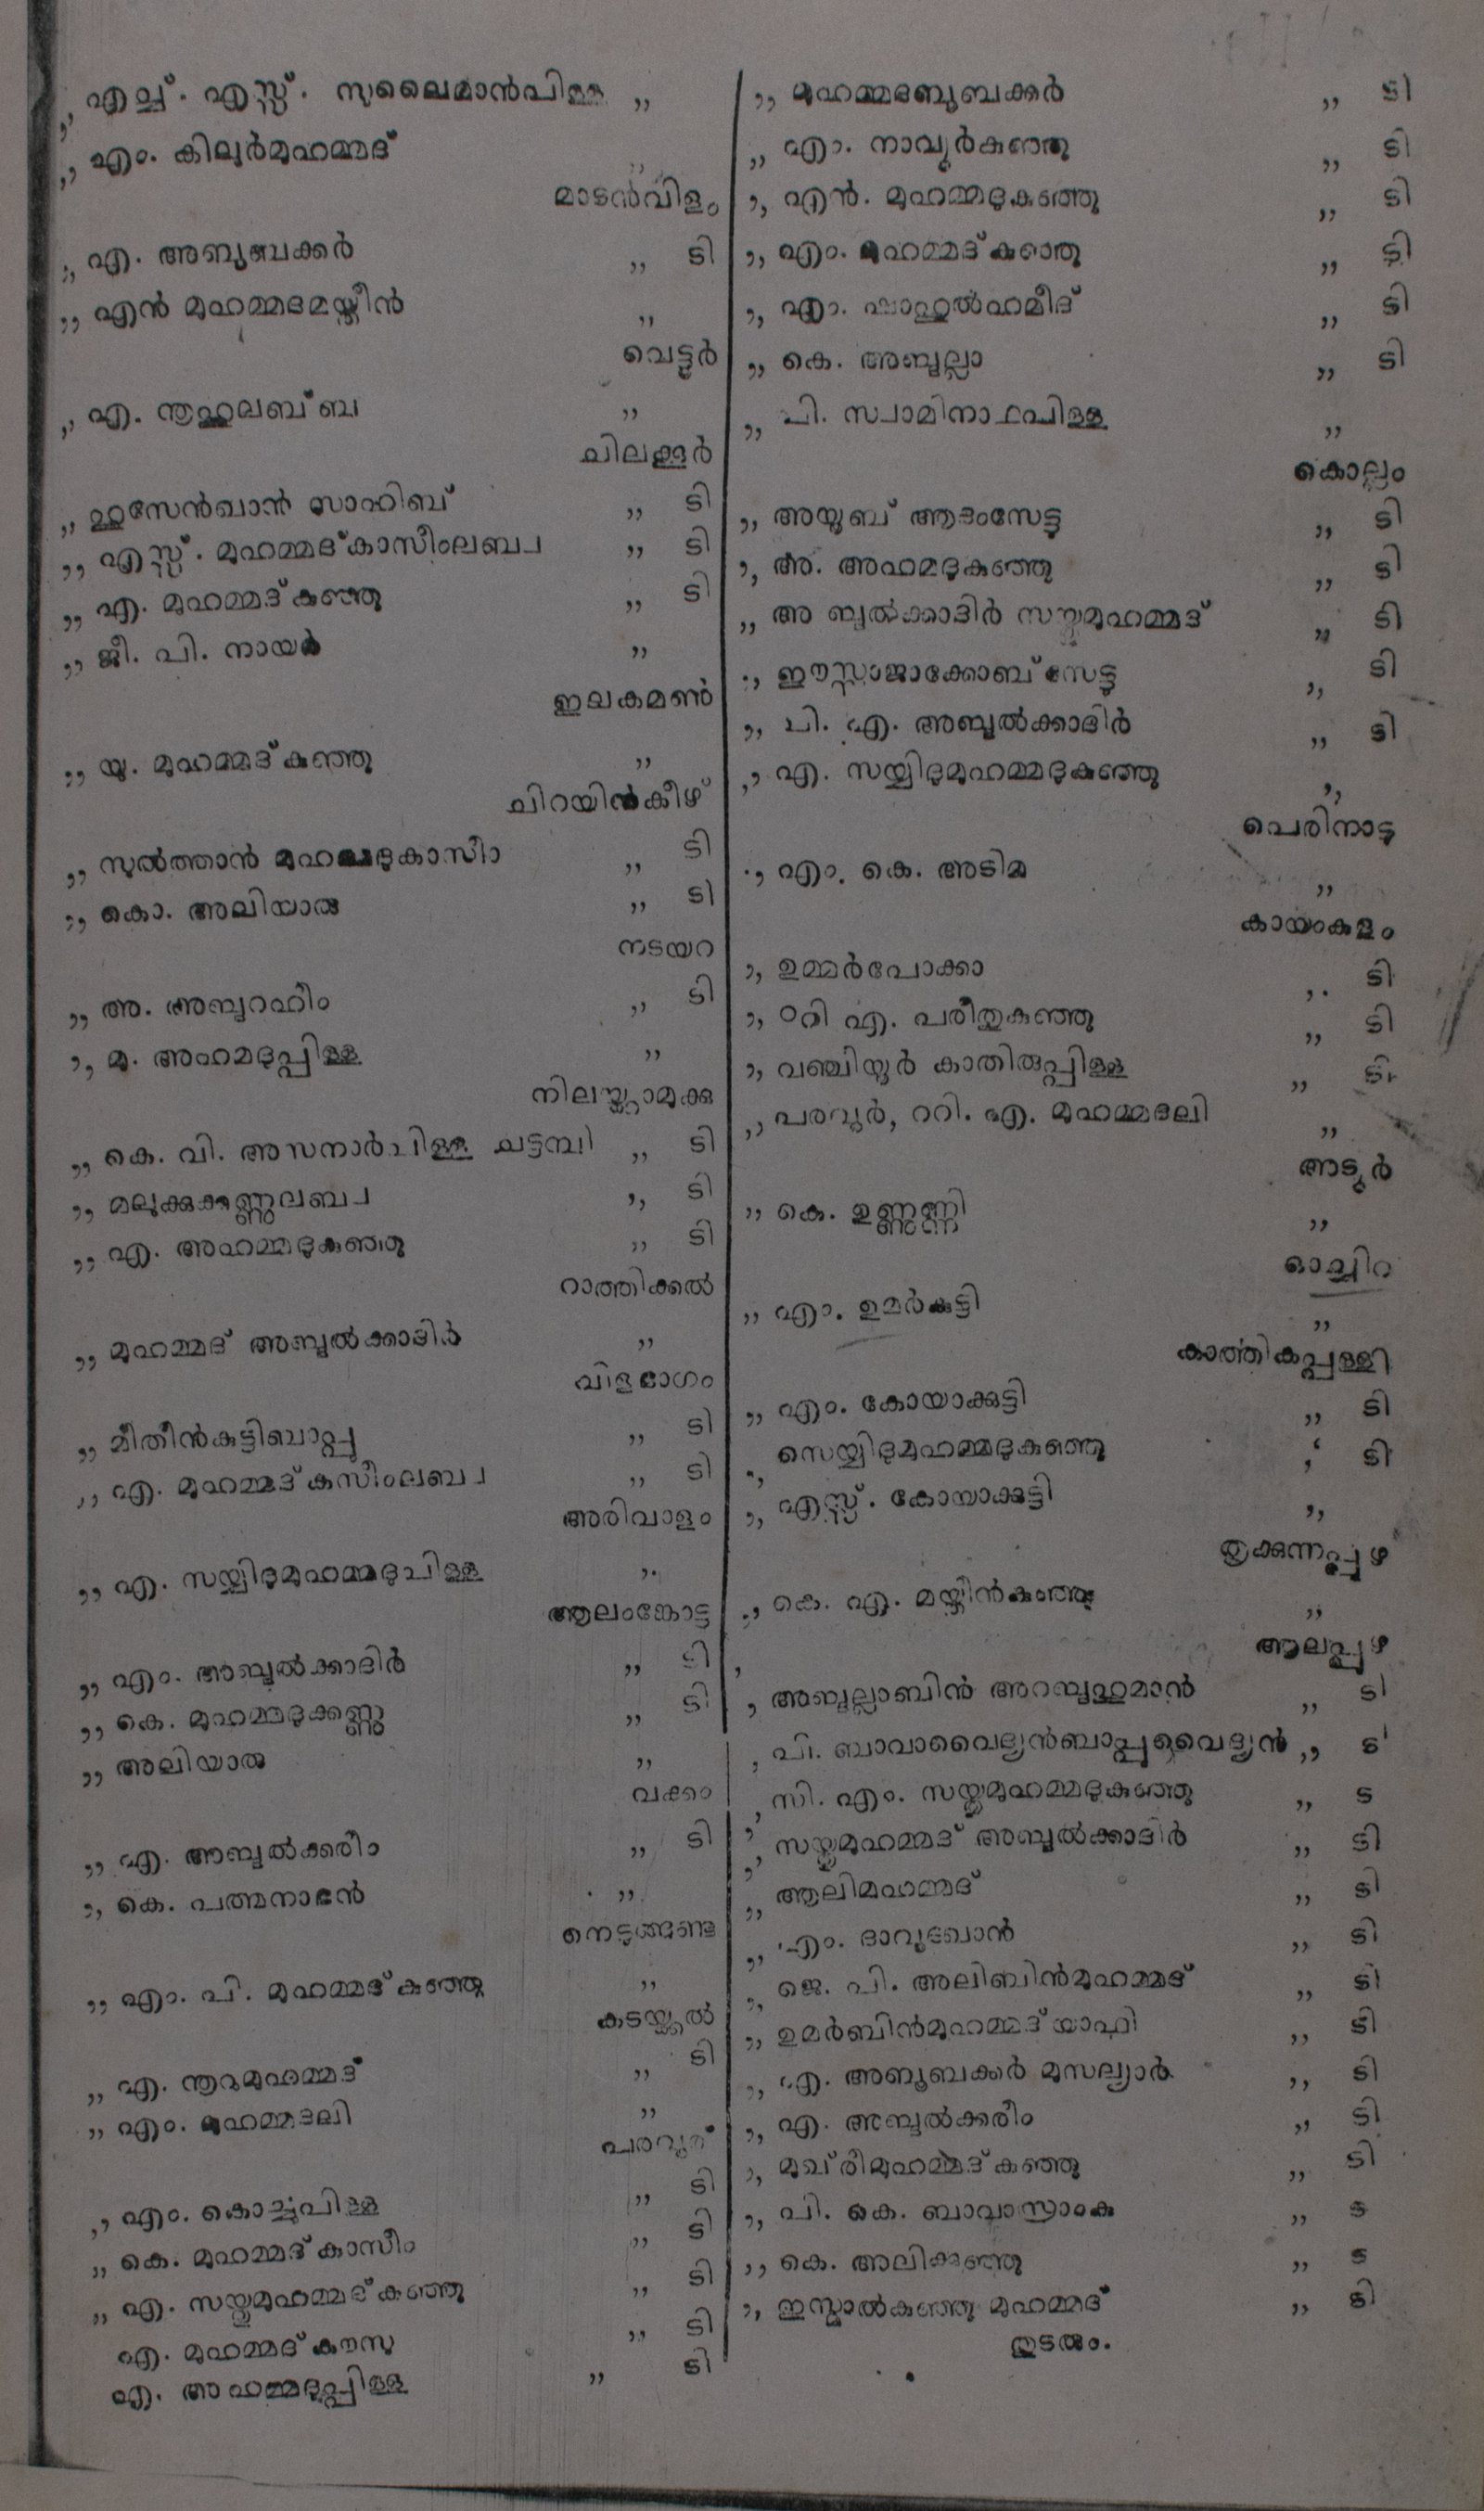 ,, എച്ച്. എസ്സ്. സുലൈമാൻപിള്ള ,,
,, എം. കിലൂർമുഹമ്മദ് ,,
മാടൻവിളം
,, എ. അബൂബേക്കർ ,, ടി
,, എൻ മുഹമ്മദുമയ്തീൻ ,,
വെട്ടൂർ
,, എ. നൂഹുലബ്ബ ,,
ചിലക്കൂർ
,, ഹുസേൻഖാൻ സാഹിബ് ,, ടി
,, എസ്സ്. മുഹമ്മദ്കാസീംലബ്ബ ,, ടി
,, എ. മുഹമ്മദ്കുഞ്ഞു ,, ടി
,, ജീ. പി. നായർ ,,
ഇലകമൺ
,, യു. മുഹമ്മദ്കുഞ്ഞു ,,
ചിറയിൻകീഴ്
,, സുൽത്താൻ മുഹമ്മദുകാസീം ,, ടി
,, കൊ. അലിയാരു ,, ടി
നടയറ
,, അ. അബ്ദുറഹീം ,, ടി
,, മു. അഹമദുപ്പിള്ള ,,
നിലയ്ക്കാമുക്കു
,, കെ. വി. അസനാർപിള്ള ചട്ടമ്പി ,, ടി
,, മലുക്കുകണ്ണുലബ്ബ ,, ടി
,, എ. അഹമ്മദുകുഞ്ഞു ,, ടി
റാത്തിക്കൽ
,, മുഹമ്മദ് അബ്ദുൽക്കാദിർ ,,
വിളഭാഗം
,, മീതീൻകുട്ടിബാറ്റപ്പു ,, ടി
,, എ. മുഹമ്മദ്കസീംലബ്ബ ,, ടി
അരിവാളം
,, എ. സയ്യിദുമുഹമ്മദുപിള്ള ,,
ആലംങ്കോട്ട
,, എം. അബ്ദുൽക്കാദിർ ,, ടി
,, കെ. മുഹമ്മദുക്കണ്ണു ,, ടി
,, അലിയാരു ,,
വക്കം
,, എ. അബ്ദുൽക്കരീം ,, ടി
,, കെ. പത്മനാഭൻ ,,
നെടുങ്ങണ്ട
,, എം. പി. മുഹമ്മദ്കുഞ്ഞു ,,
കടയ്ക്കൽ
,, എ. നൂറുമുഹമ്മദ് ,, ടി
,, എം. മുഹമ്മദലി ,,
പരവൂര്
,, എം. കൊച്ചുപിള്ള ,, ടി
,, കെ. മുഹമ്മദ്കാസീം ,, ടി
,, എ. സയ്തുമുഹമ്മദ്കുഞ്ഞു ,, ടി
എ. മുഹമ്മദ്കൗസു ,, ടി
എ. അഹമ്മദുപ്പിള്ള ,, ടി
,, മുഹമ്മദബൂബക്കർ ,, ടി
,, എം. നാവൂർകുഞ്ഞു ,, ടി
,, എൻ. മുഹമ്മദുകുഞ്ഞു ,, ടി
,, എം. മുഹമ്മദ്കുഞ്ഞു ,, ടി
,, എം. ഷാഹുൽഹമീദ് ,, ടി
,, കെ. അബ്ദുല്ലാ ,, ടി
,, പി. സ്വാമിനാഥപിള്ള ,,
കൊല്ലം
,, അയൂബ് ആദംസേട്ടു ,, ടി
,, അ. അഹമദുകുഞ്ഞു ,, ടി
,, അബ്ദുൽക്കാദിർ സയ്തുമുഹമ്മദ് ,, ടി
,, ഈസ്സാജാക്കോബ്സേട്ടു ,, ടി
,, പി. എ. അബ്ദുൽക്കാദിർ ,, ടി
,, എ. സയ്യിദുമുഹമ്മദുകുഞ്ഞു ,,
പെരിനാട്ടു
,, എം. കെ. അടിമ ,,
കായംകുളം
,, ഉമ്മർപോക്കാ ,, ടി
,, റ്റി എ. പരീതുകുഞ്ഞു ,, ടി
,, വഞ്ചിയൂർ കാതിരുപ്പിള്ള ,, ടി
,, പരവൂർ, ററി. എ. മുഹമ്മദലി ,,
അടൂർ
,, കെ. ഉണ്ണുണ്ണി ,,
ഓച്ചിറ
,, എം. ഉമർകുട്ടി ,,
കാത്തികപ്പള്ളി
,, എം. കോയാക്കുട്ടി ,, ടി
,, സെയ്യിദുമുഹമ്മദുകുഞ്ഞു ,, ടി
,, എസ്സ്. കോയാക്കുട്ടി ,,
തൃക്കുന്നപ്പുഴ
,, കെ. എ. മയ്തീൻകുഞ്ഞു ,,
ആലപ്പുഴ
, അബ്ദുല്ലാബിൻ അറബ്ദുഹുമാൻ ,, ടി
, പി. ബാവാവൈദ്യൻബാപ്പുവൈദ്യൻ ,, ട
, സി. എം. സയ്തുമുഹമ്മദുകുഞ്ഞു ,, ട
,, സയ്തുമുഹമ്മദ് അബ്ദുൽക്കാദിർ ,, ടി
,, ആലിമഹമ്മദ് ,, ടി
,, എം. ദാവൂദ്ഖാൻ ,, ടി
,, ജെ. പി. അലിബിൻമുഹമ്മദ് ,, ടി
,, ഉമർബിൻമുഹമ്മദ്യാഫി ,, ടി
,, എ. അബൂബക്കർ മുസല്യാർ ,, ടി
,, എ. അബ്ദുൽക്കരീം ,, ടി
,, മുഖ്രീമുഹമ്മദ്കുഞ്ഞു ,, ടി
,, പി. കെ. ബാവാസ്രാംക ,, ട
,, കെ. അലിക്കുഞ്ഞു ,, ട
,, ഇസ്മാൽകുഞ്ഞു മുഹമ്മദ് ,, ടി
തുടരും.